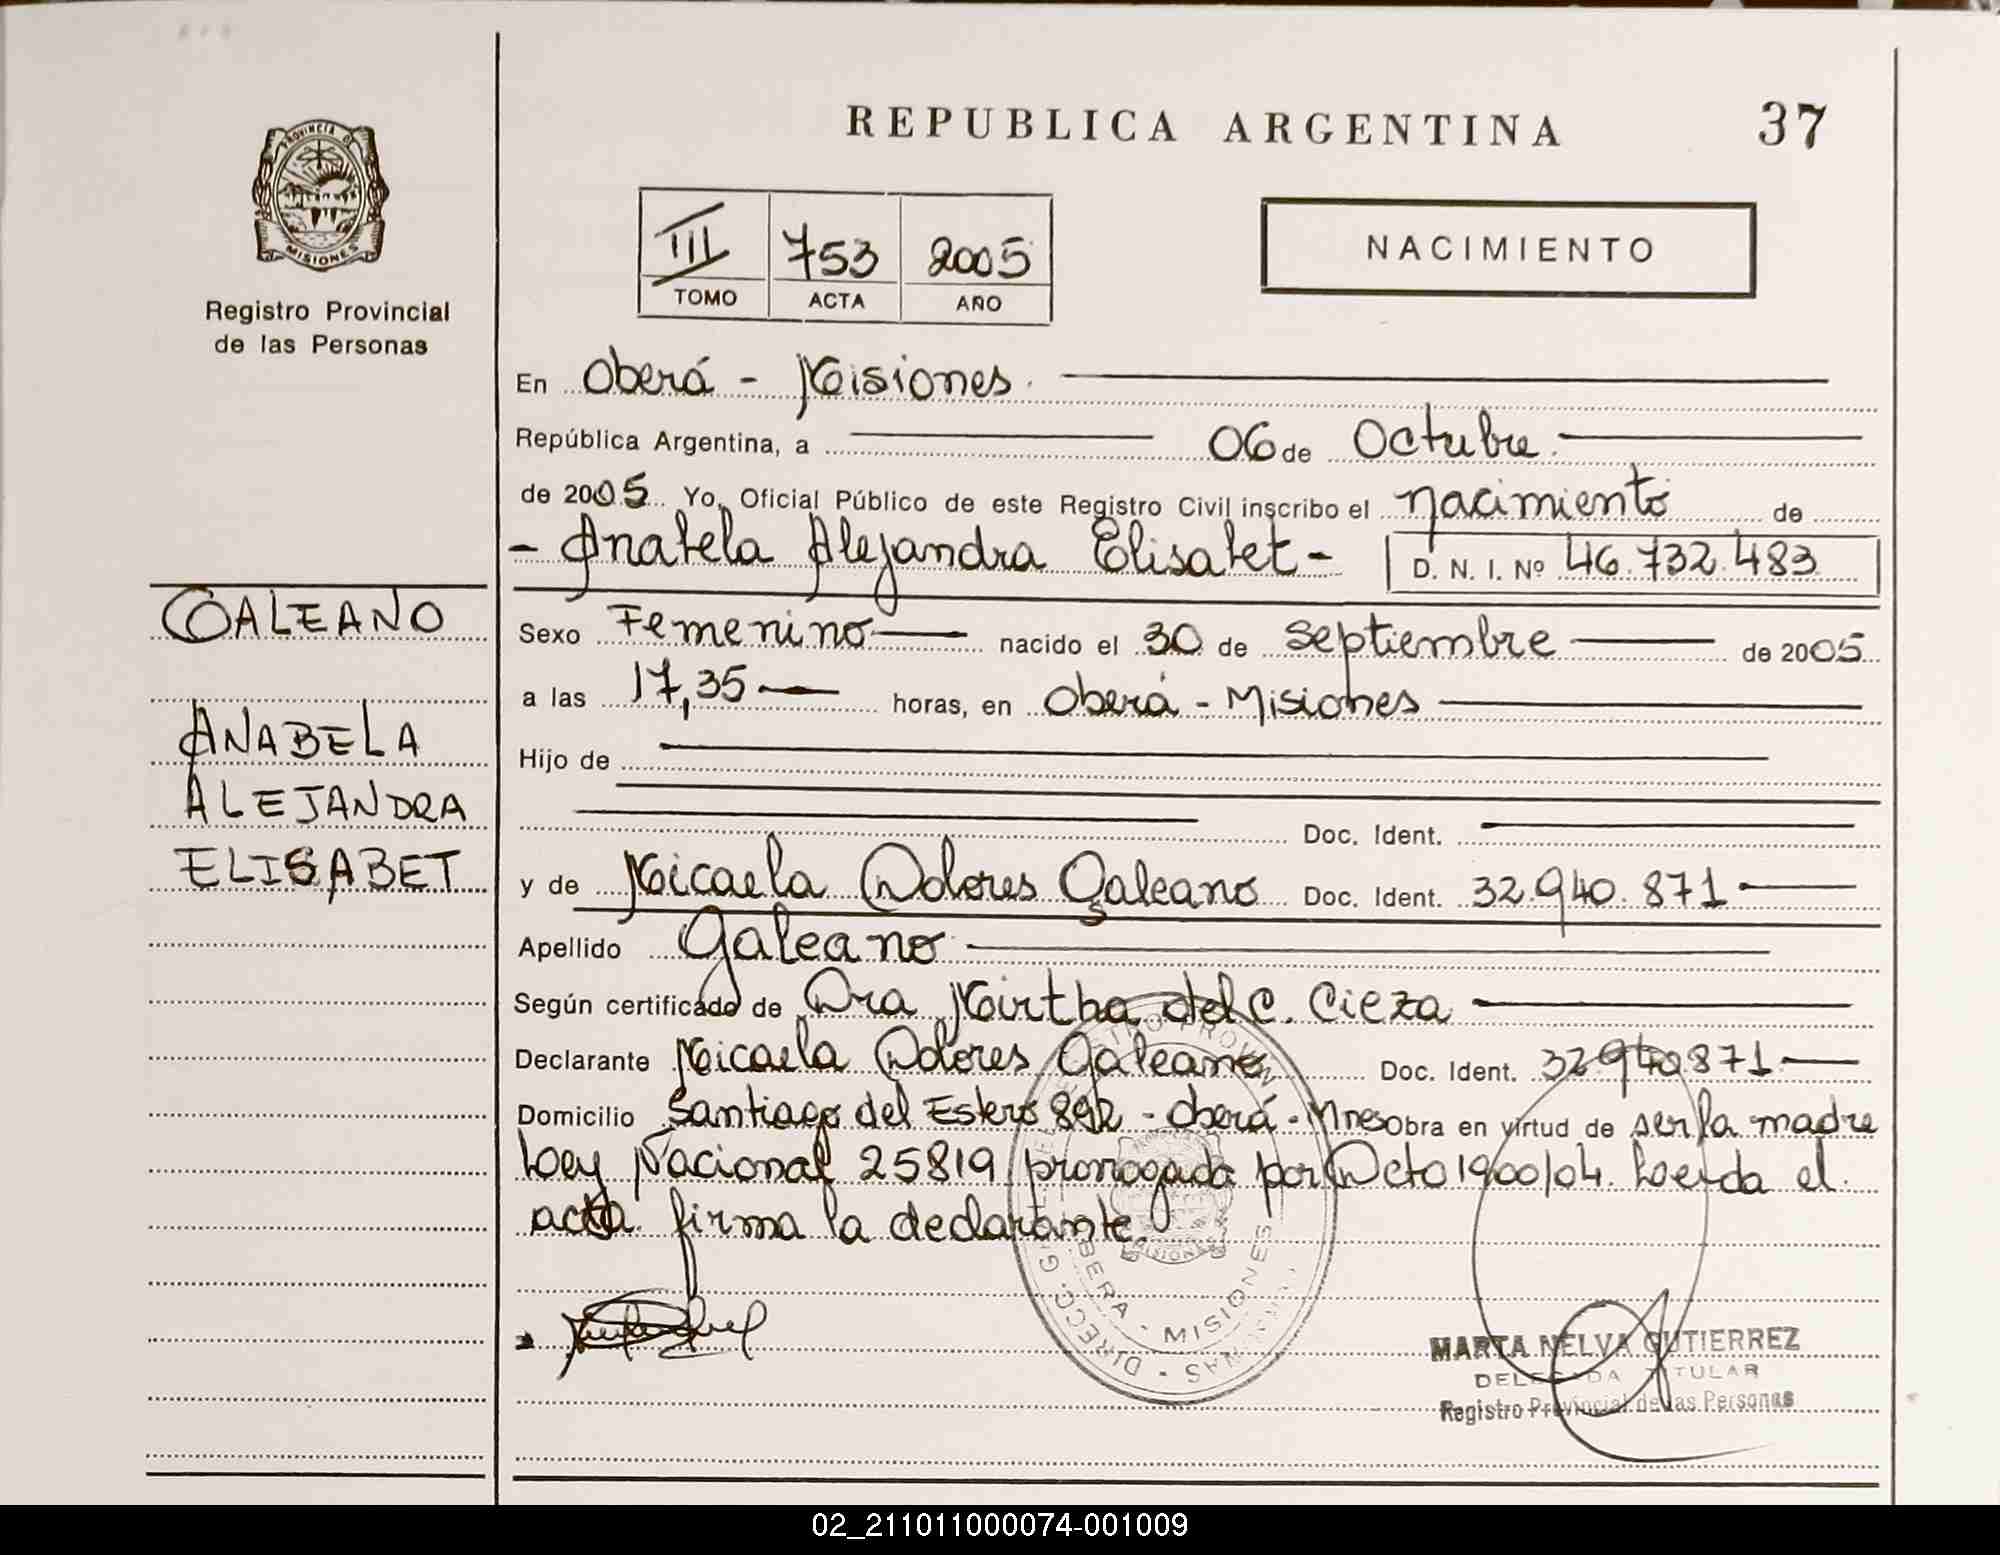 REPUBLICA ARGENTINA
37
PROVINCIA DE
MISIONES
Registro Provincial
de las Personas
III 753 2005
TOMO ACTA AÑO
NACIMIENTO
En Oberá - Misiones.
República Argentina, a 06 de Octubre
de 2005 Yo, Oficial Público de este Registro Civil inscribo el nacimiento de
- Anabela Alejandra Elisabet - D. N. I. Nº 46.732.483
GALEANO
ANABELA
ALEJANDRA
ELISABET
Sexo Femenino nacido el 30 de Septiembre de 2005
a las 17,35 horas, en Oberá - Misiones
Hijo de
Doc. Ident.
y de Micaela Dolores Galeano Doc. Ident. 32.940.871
Apellido Galeano
Según certificado de Dra Mirtha del C. Cieza
Declarante Micaela Dolores Galeano Doc. Ident. 32940871
Domicilio Santiago del Estero 892 - Oberá - Mnes obra en virtud de ser la madre
Ley Nacional 25819 prorrogada por Dcto 1900/04. Leída el
acta firma la declarante.
OBERA - MISIONES
MARTA NELVA GUTIERREZ
DELEGADA TITULAR
Registro Provincial de las Personas
02_211011000074-001009